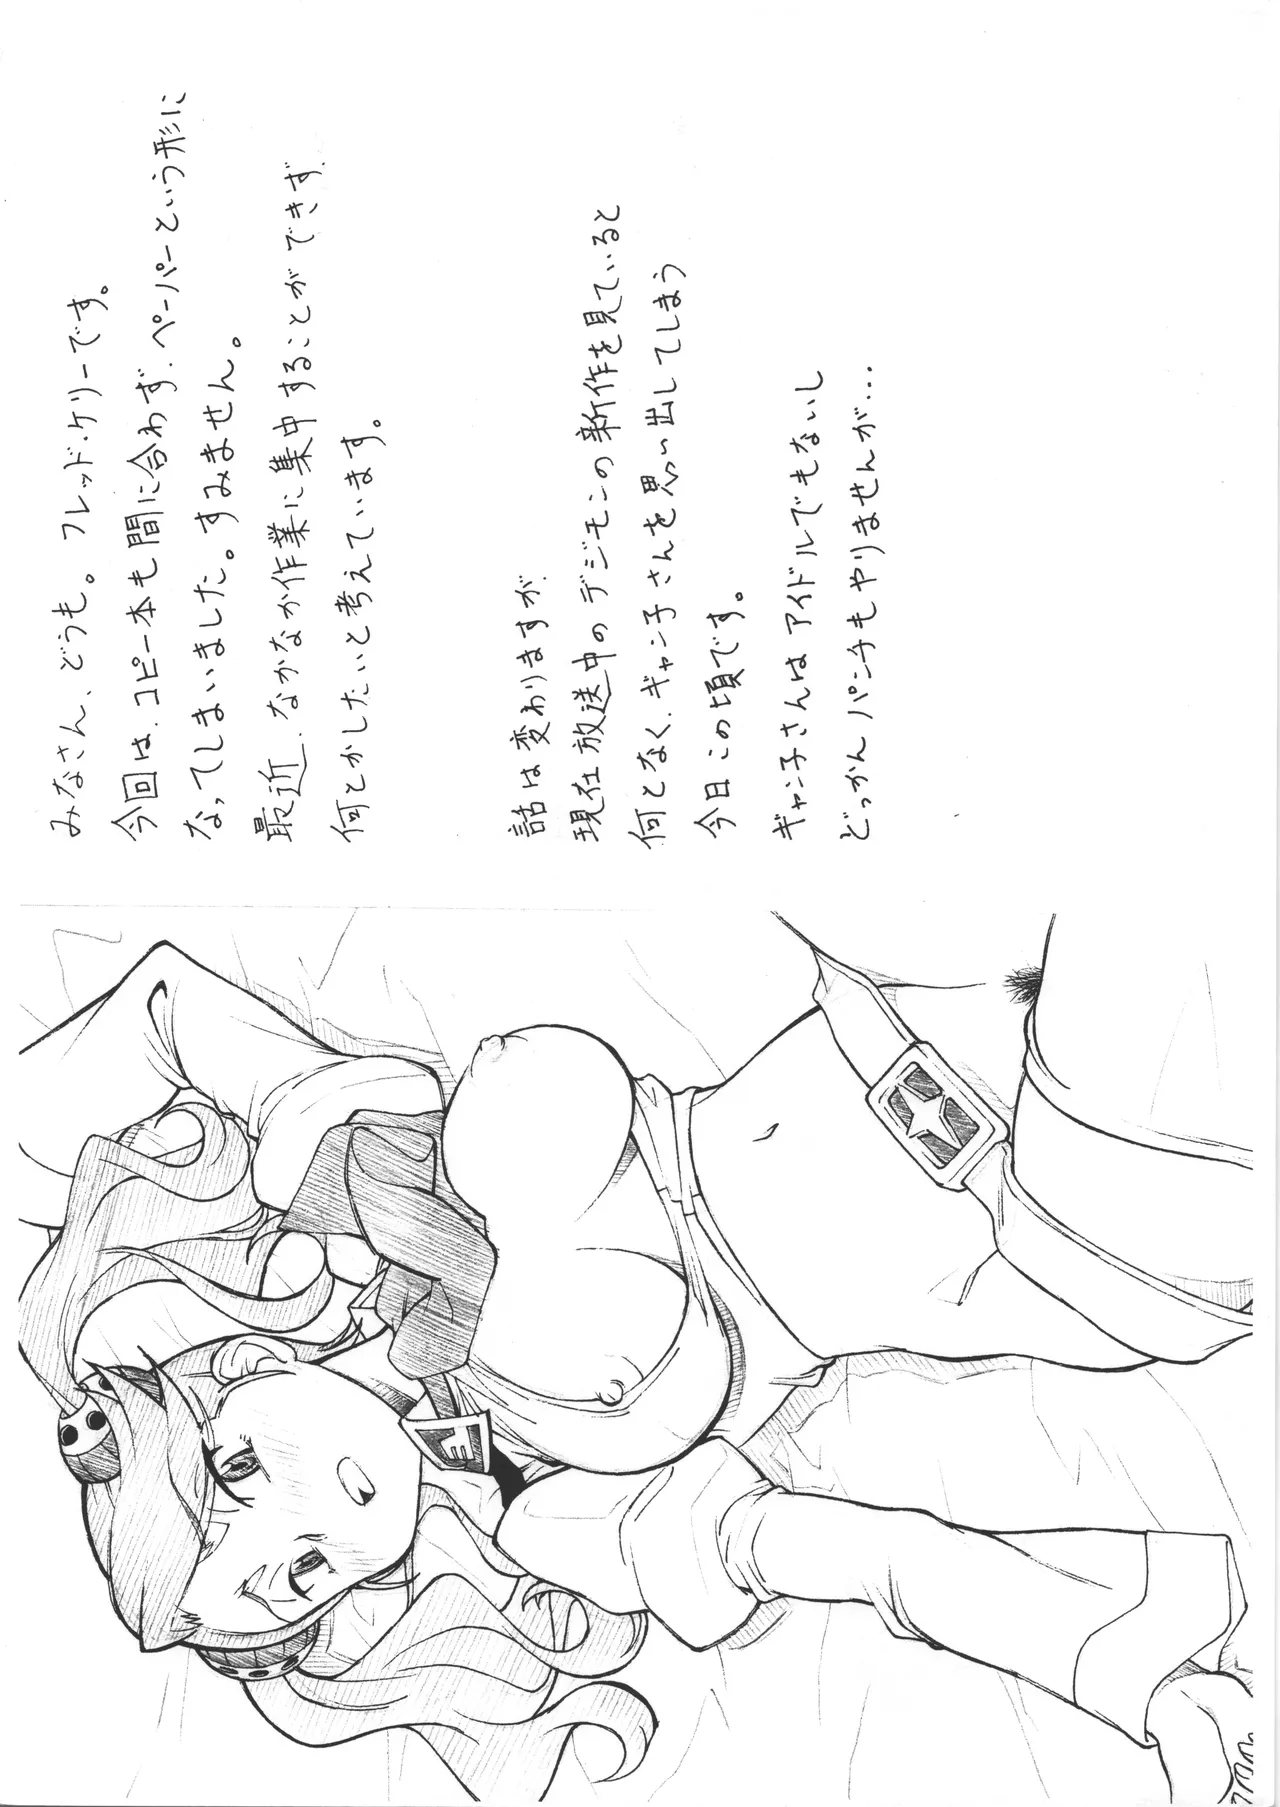 みなさん、どうも。フレッド・ケリーです。
今回は、コピー本も間に合わず、ペーパーという形に
なってしまいました。すみません。
最近、なかなか作業に集中することができず、
何とかしたいと考えています。
話は変わりますが、
現在放送中のデジモンの新作を見ていると
何となく、ギャン子さんを思い出してしまう
今日この頃です。
ギャン子さんはアイドルでもないし
どっかんパンチもやりませんが…